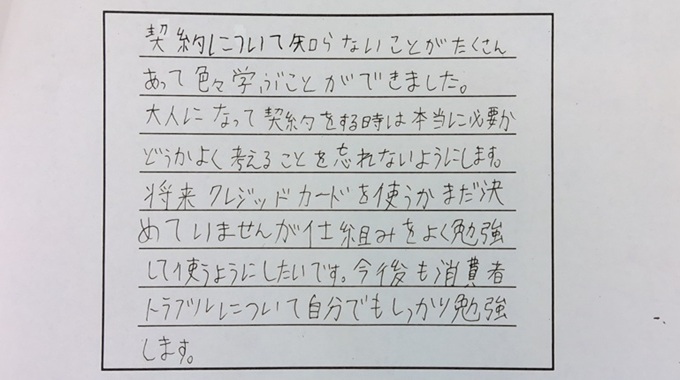 契約について知らないことがたくさん
あって色々学ぶことができました。
大人になって契約をする時は本当に必要か
どうかよく考えることを忘れないようにします。
将来クレジッドカードを使うかまだ決
めていませんが仕組みをよく勉強
して使うようにしたいです。今後も消費者
トラブルについて自分でもしっかり勉強
します。